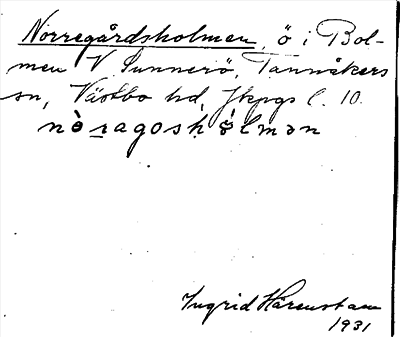 Norregårdsholmen, ö i Bol-
men V Sunnerö, Tannåkers
sn, Västbo hd, Jkpgs l. 10.
nòragoshólmən
Ingrid Härenstam
1931